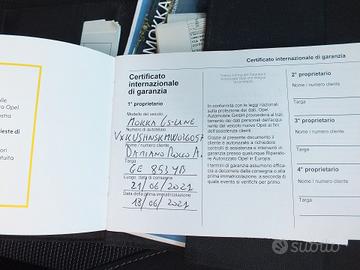 MOKKA
Certificato internazionale di garanzia
Certificato
internazionale
di garanzia
1° proprietario
Modello del veicolo
MOKKA GS-LINE
Numero di autotelaio
Nome / numero cliente
DAMIANO ROCCO A.
Targa
GE 853YB
Luogo, data di consegna
21/06/2021
Data della prima immatricolazione
18/06/2021
In conformità con le leggi nazionali
sulla protezione dei dati, Opel
Automobile GmbH procederà al trat-
tamento dei dati personali dell'acqui-
rente del veicolo nuovo Opel ai fini
dell'assistenza clienti.
Grazie al presente documento il
cliente è autorizzato a richiedere
controlli di assistenza e interventi in
garanzia presso qualunque Riparato-
re Autorizzato Opel in Europa.
Il termine di garanzia assume effica-
cia a decorrere dalla consegna o alla
prima immatricolazione, a seconda di
quale evento si verifichi per primo.
2° proprietario
Nome / numero cliente
Targa
3° proprietario
Nome / numero cliente
Targa
4° proprietario
Nome / numero cliente
Targa
subito